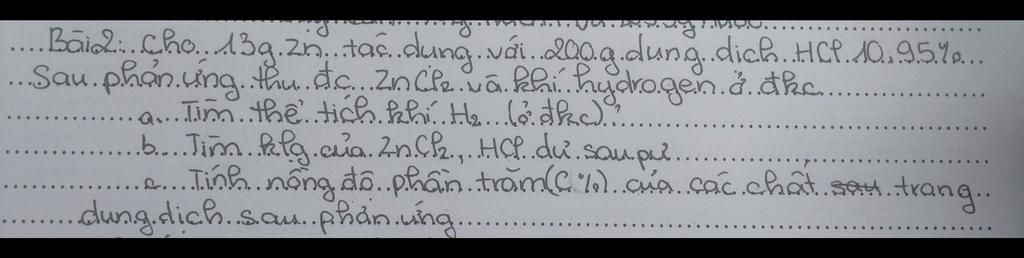 Bài 2: Cho 13g Zn tác dụng với 200 g dung dịch HCl 10,95%
Sau phản ứng thu đc ZnCl2 và khí hydrogen ở đkc
a. Tìm thể tích khí H2 (ở đkc)?
b. Tìm klg của ZnCl2, HCl dư sau pư
c. Tính nồng độ phần trăm (C%) của các chất sau trong
dung dịch sau phản ứng